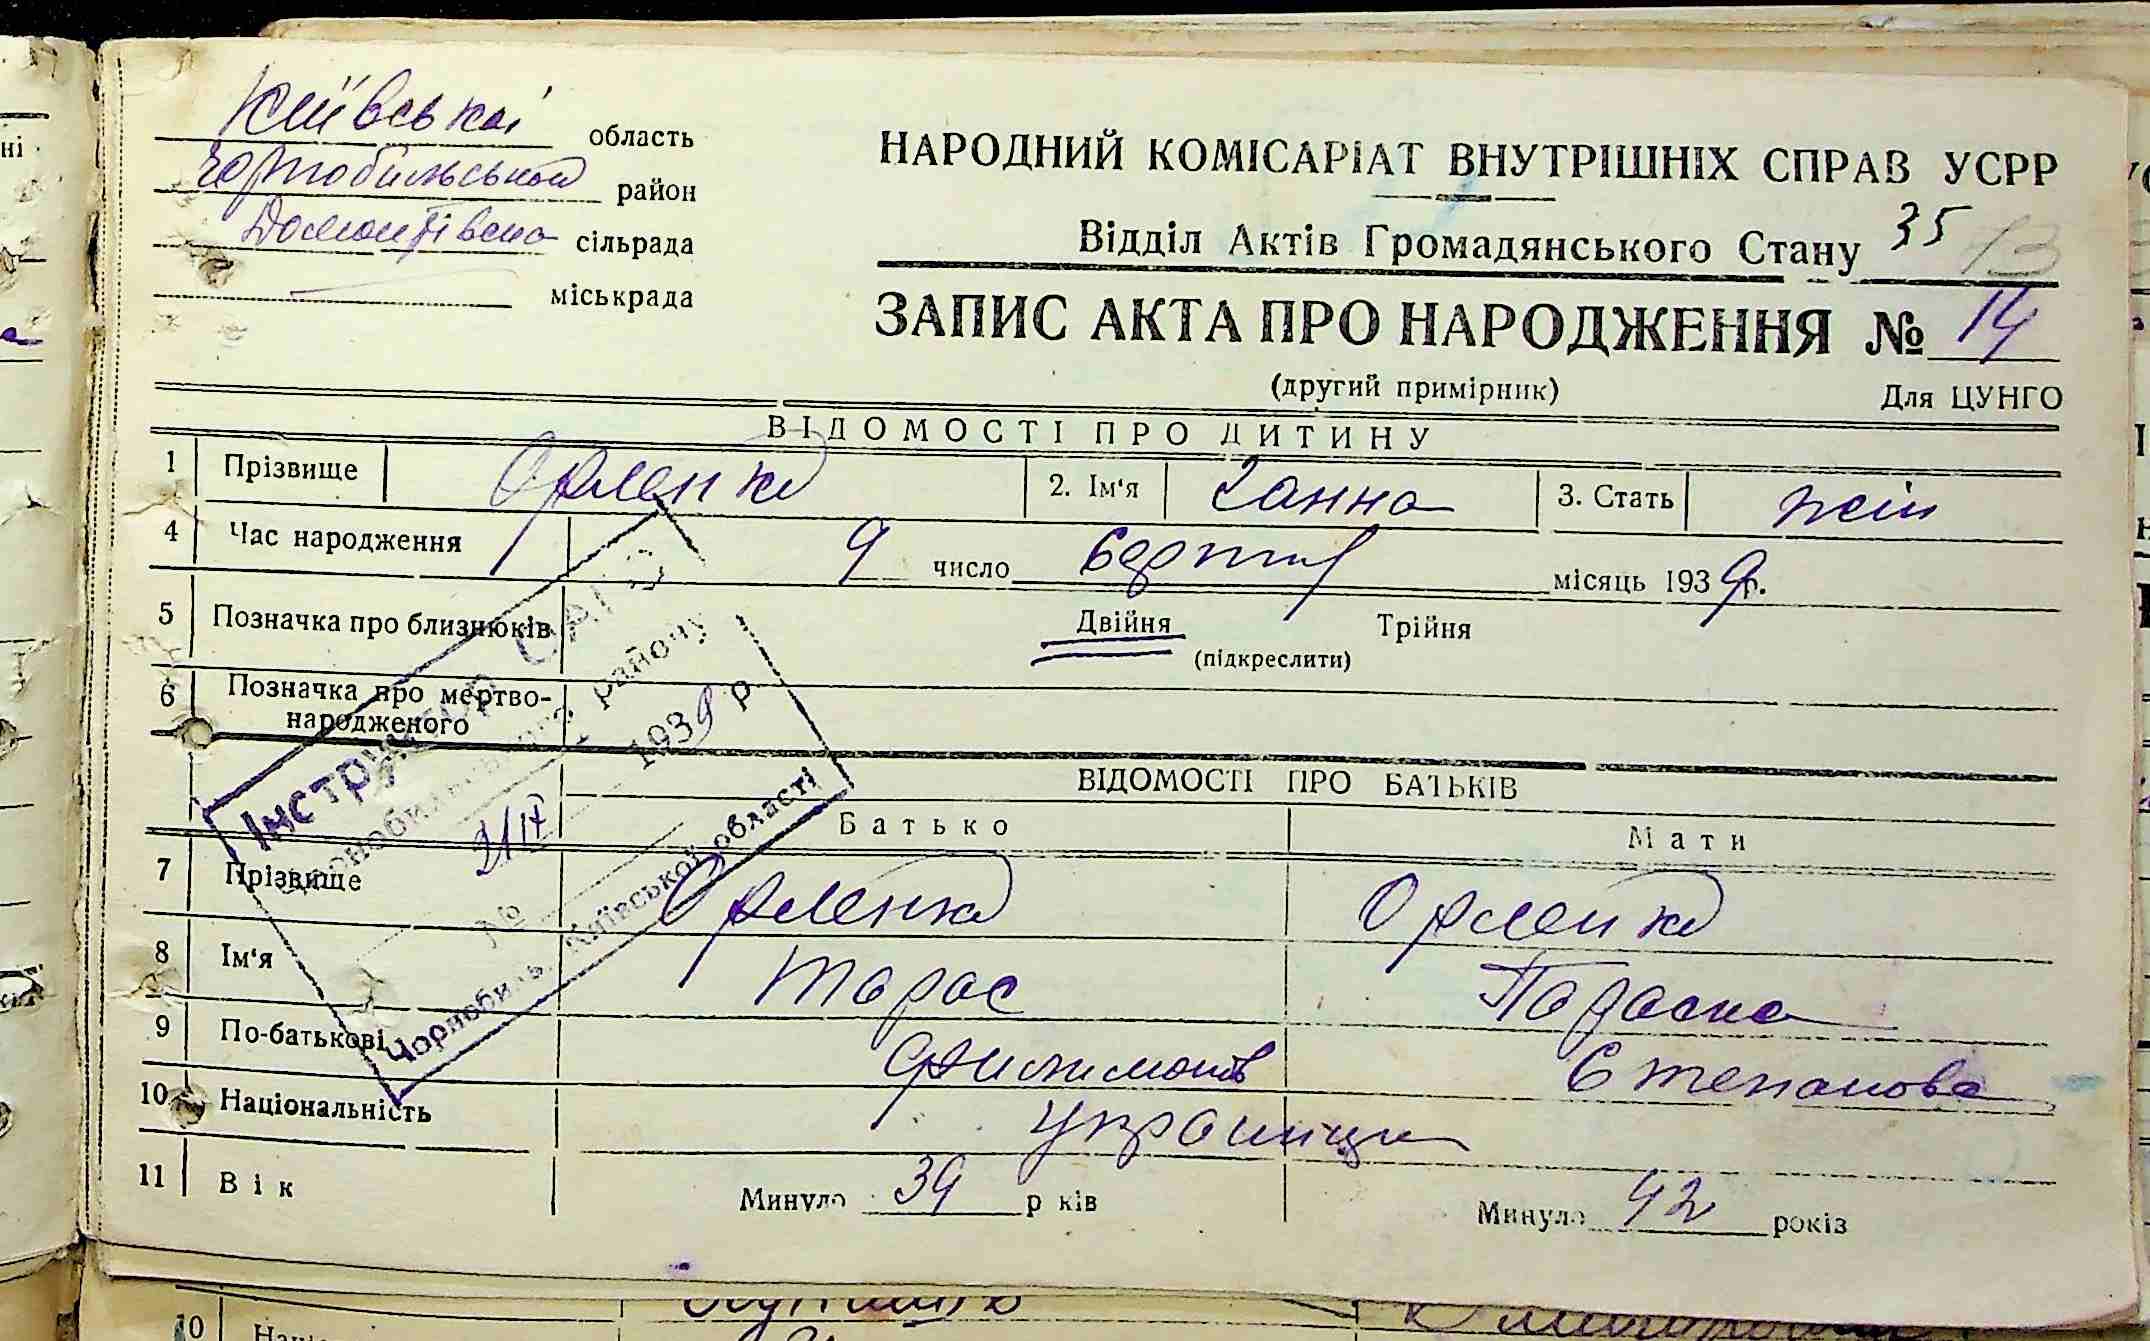 Київської область
Чорнобильський район
сільрада
міськрада
НАРОДНИЙ КОМІСАРІАТ ВНУТРІШНІХ СПРАВ УСРР
Відділ Актів Громадянського Стану 35 13
ЗАПИС АКТА ПРО НАРОДЖЕННЯ № 14
(другий примірник) Для ЦУНГО
ВІДОМОСТІ ПРО ДИТИНУ
1 Прізвище Орленко 2. Ім'я Ганна 3. Стать жін
4 Час народження 9 число місяць 1939 р.
5 Позначка про близнюків Двійня Трійня
(підкреслити)
6 Позначка про мертво-
народженого
ВІДОМОСТІ ПРО БАТЬКІВ
Батько Мати
7 Прізвище Орленко Орленко
8 Ім'я Тарас Параска
9 По-батькові Филимонов Степанова
10 Національність Українці
11 Вік Минуло 39 р ків Минуло 42 років
Інструктор ЗАГС
Чорнобильського району
21/IV 1939 р
№
Чорнобиль, Київської області
10